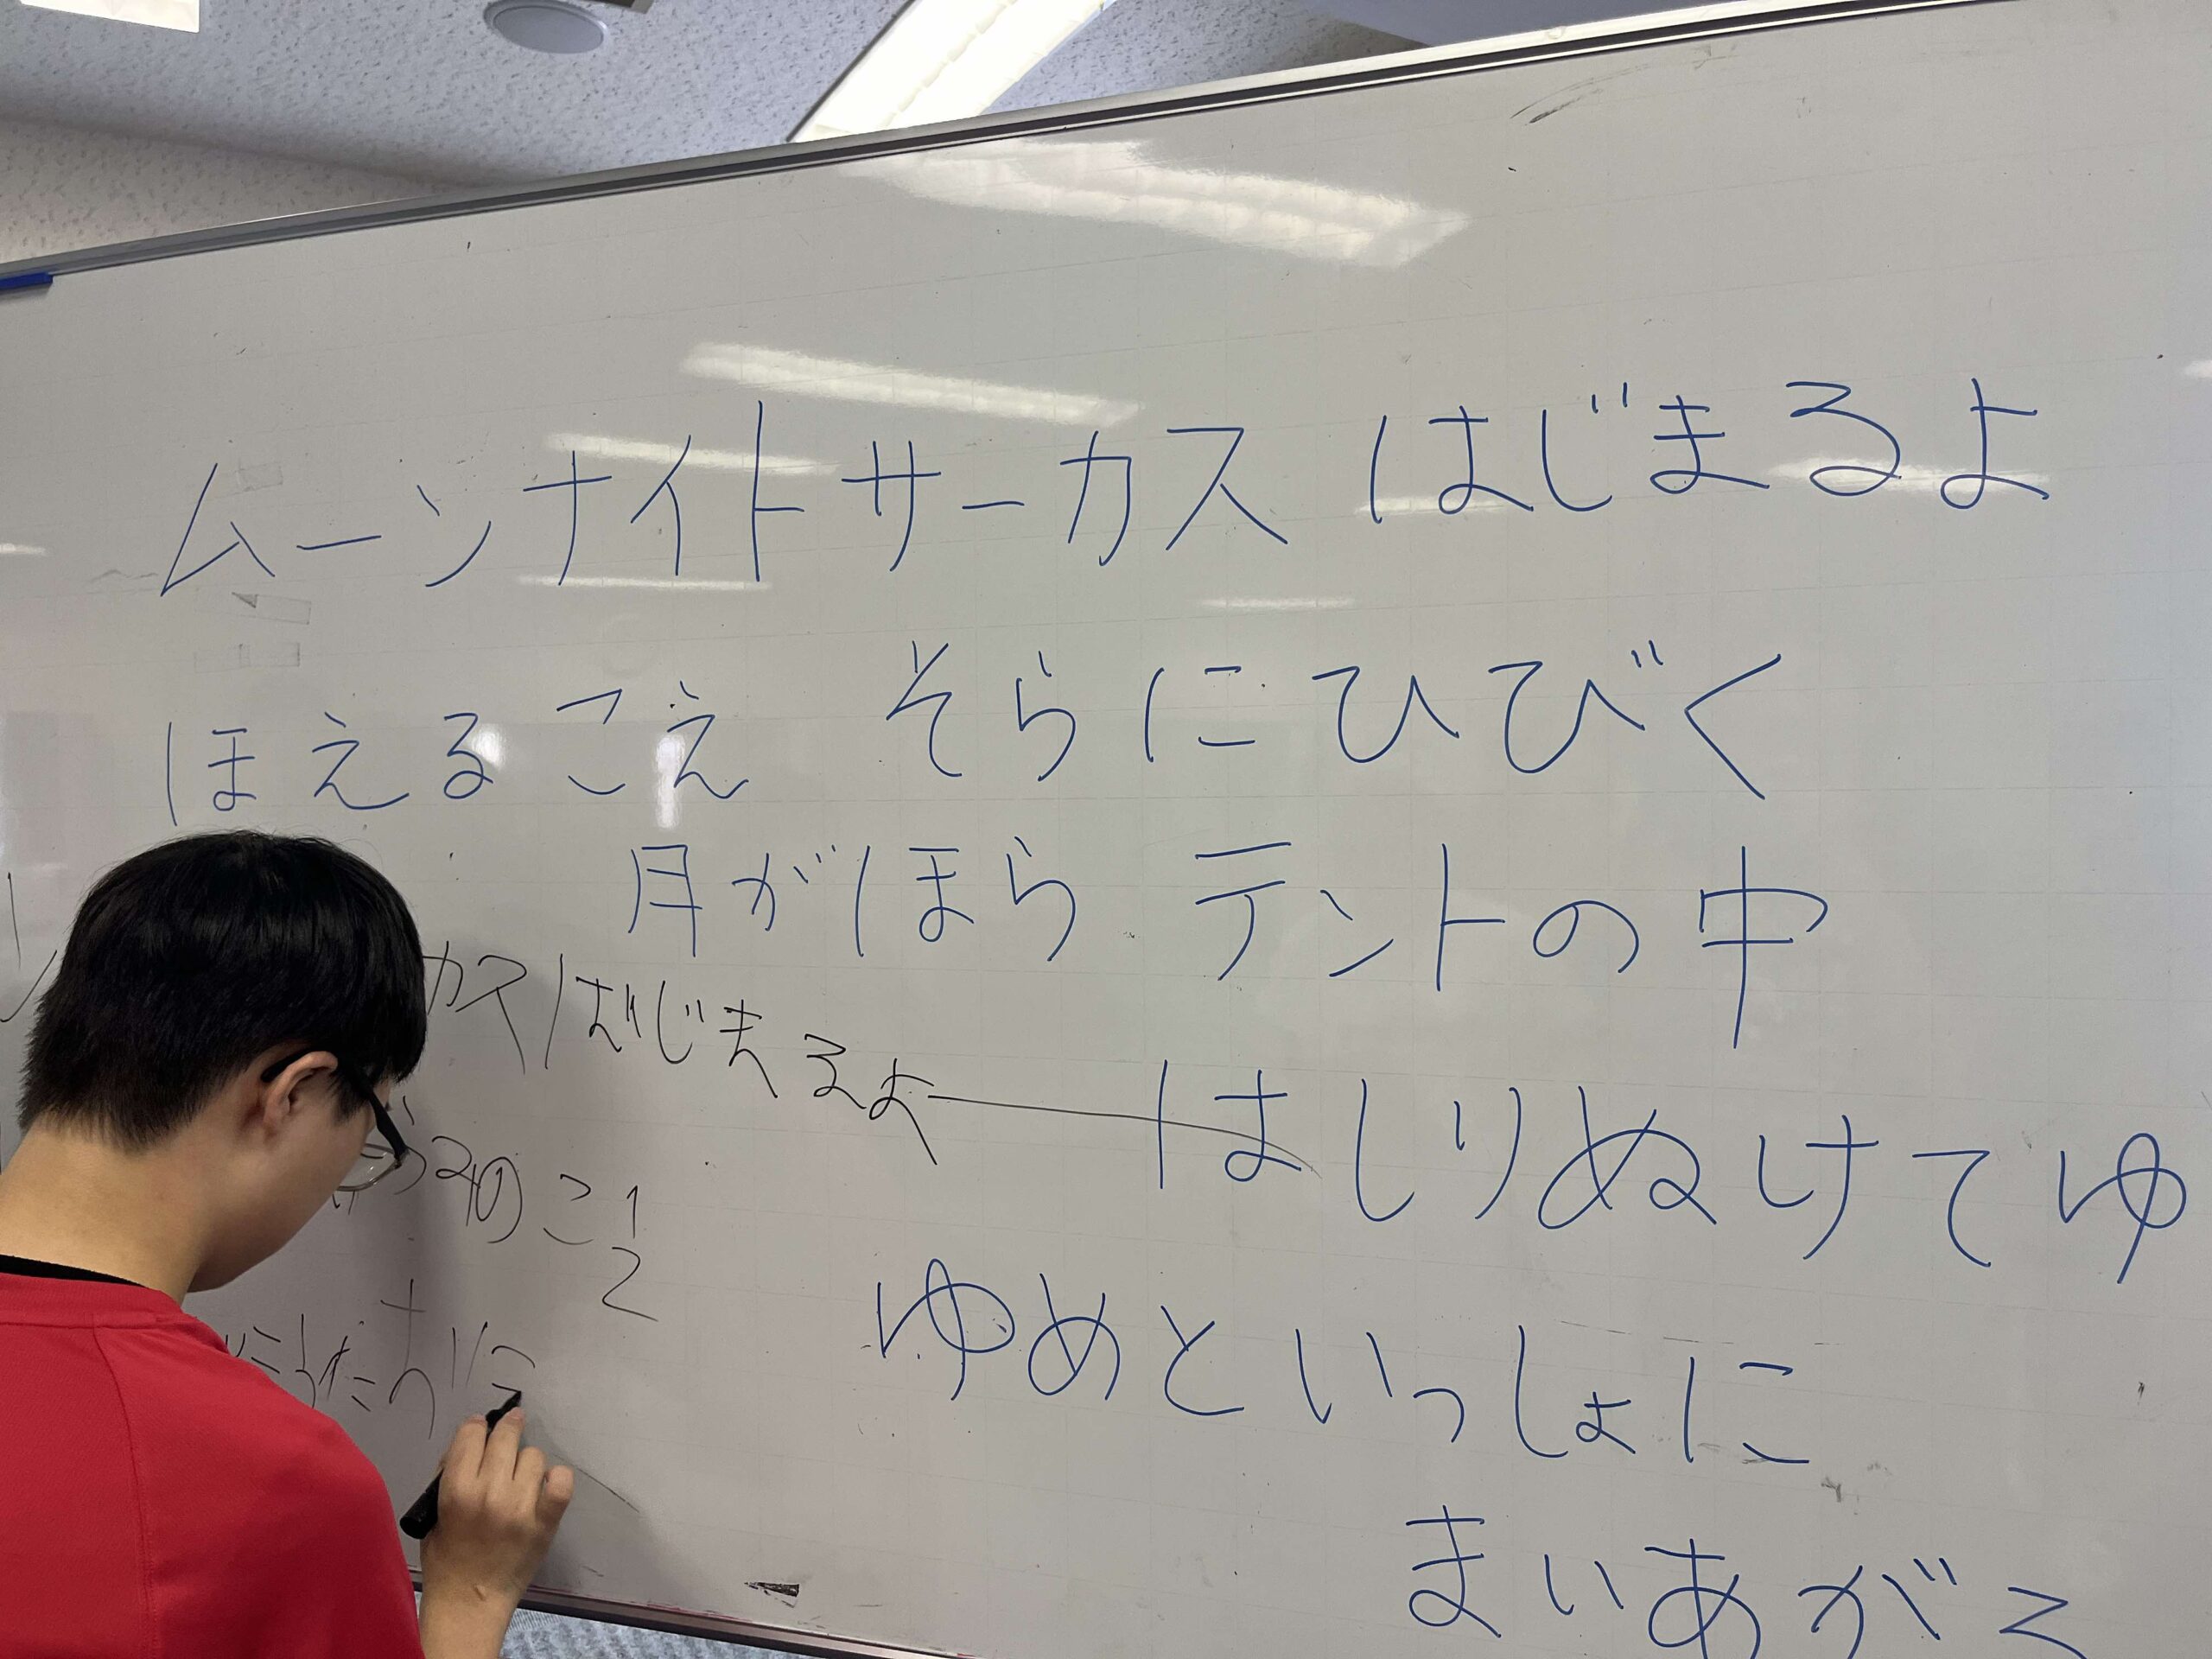 ムーンナイトサーカス はじまるよ
ほえるこえ そらにひびく
月がほら テントの中
カスはじまるよ
はしりぬけてゆ
ゆめといっしょに
まいあがる